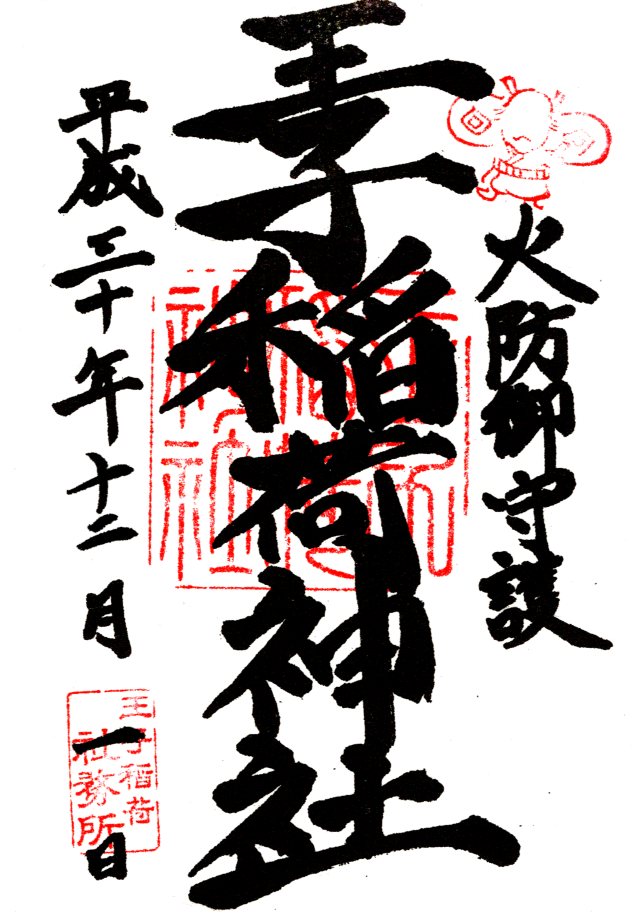 火防御守護
王子稲荷神社
平成三十年十二月一日
王子稲荷
社務所